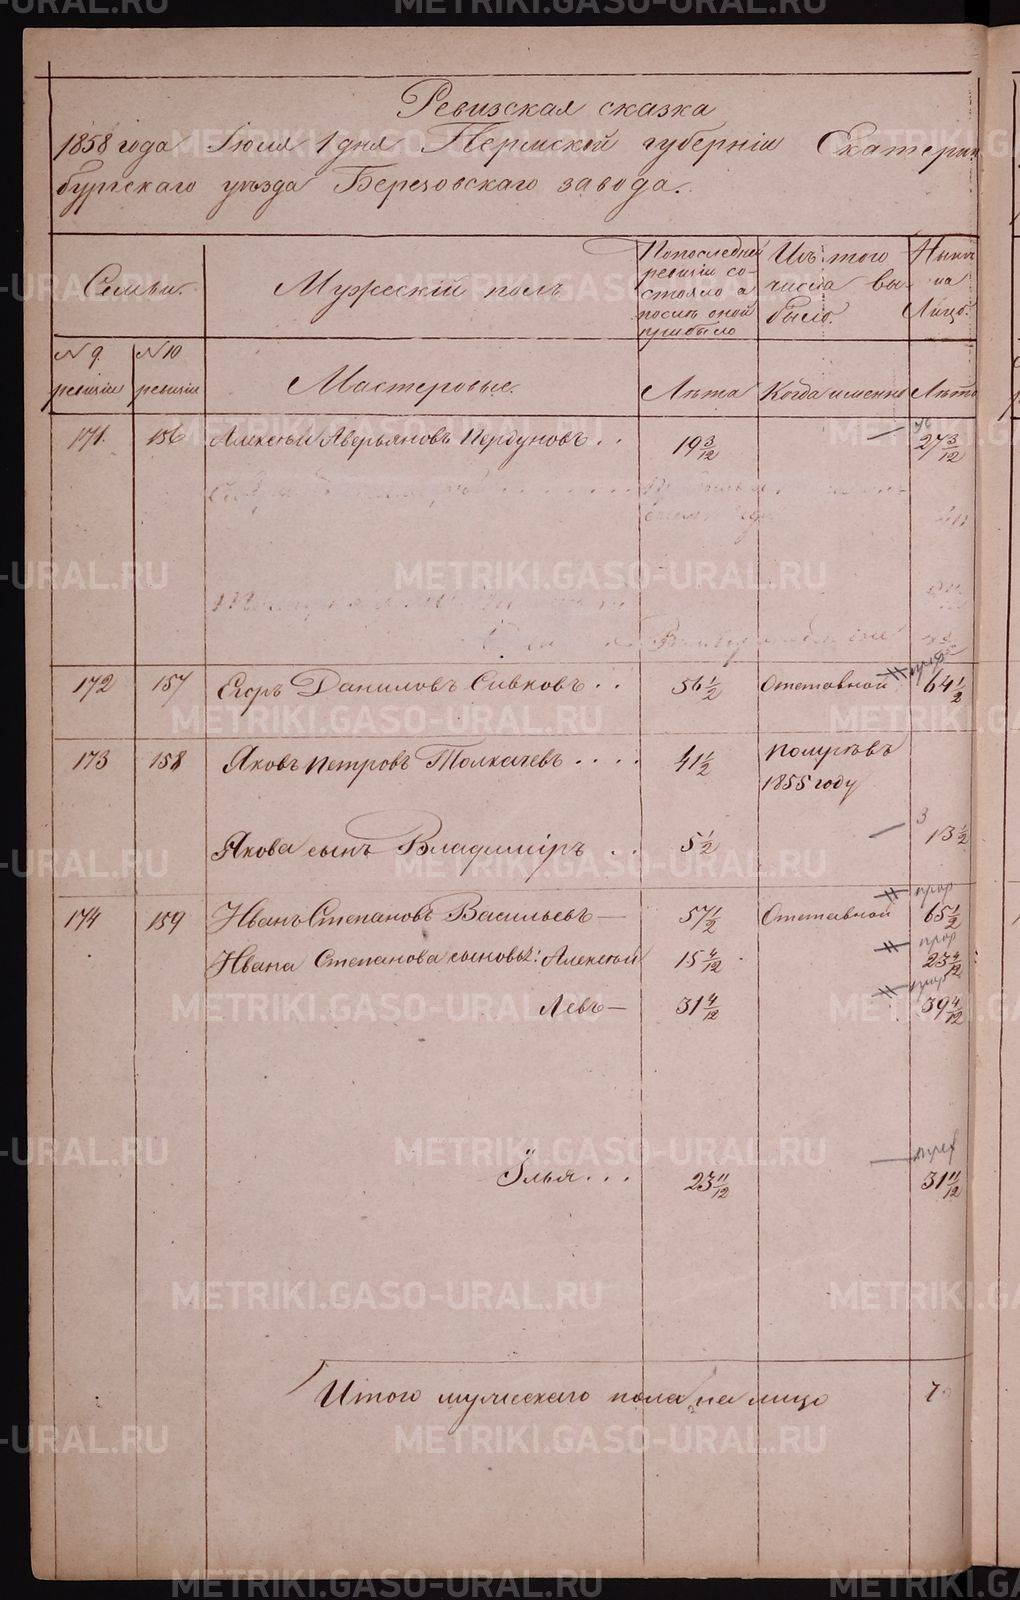 Ревизская сказка
1858 года Июля 1 дня Пермской губернiи Екатерин
бургскаго уѣзда Березовскаго завода.
Семьи.
Мужескiй полъ
По последней
ревизiи со-
стояло а
послѣ оной
прибыло
Изъ того
числа вы-
было.
Нынѣ
на
Лицо.
№ 9. ревизiи
№ 10 ревизiи
Мастеровые.
Лѣта
Когда именно
Лѣта
171. 156 Алексѣй Аверьяновъ Пердуновъ . . 19 3/12 — 27 3/12
172 157 Егоръ Даниловъ Сивковъ . . 56 1/2 Отставной 64 1/2
173 158 Яковъ Петровъ Толкачевъ . . . . 41 1/2 померъ въ
1855 году
Якова сынъ Владимiръ . . 5 1/2 — 3 13 1/2
174 159 Иванъ Степановъ Васильевъ — 57 1/2 Отставной 65 1/2
Ивана Степанова сыновья: Алексѣй 15 4/12 23 4/12
Левъ — 31 4/12 39 4/12
Илья . . . 23 11/12 — 31 11/12
Итого мужескаго пола на лицо 7
METRIKI.GASO-URAL.RU